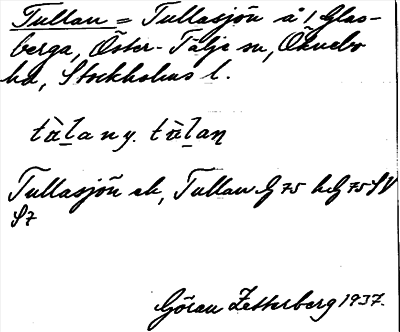 Tullan = Tullasjön å 1 Glas-
berga, Öster-Tälje sn, Öknebo
hd, Stockholms l.
tùlan y. tùlan
Tullasjön ek, Tullan G 75 hG 75 SV
S7
Göran Zetterberg 1937.